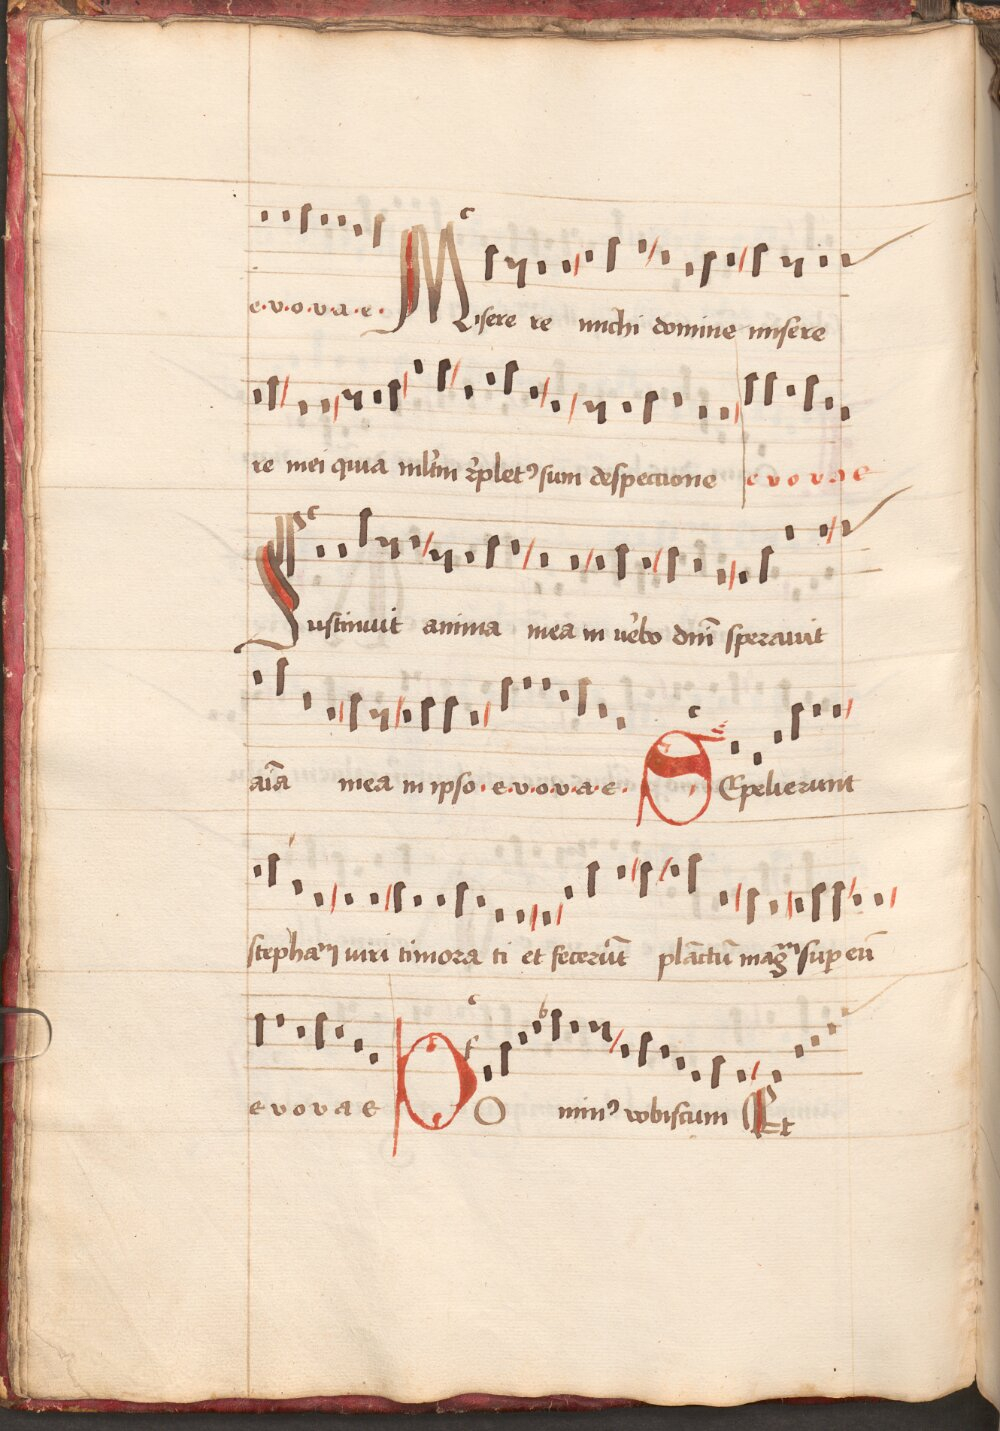 c
e·v·o·v·a·e· Misere re michi domine misere
re mei quia mľtm r̉pletꝰ sum despectione e v o v a e
c
Sustinuit anima mea in u̓bo dnī speravit
c
aīa mea in ipso · e·v·o·v·a·e· SEpelierunt
stephaᵐ viri timora ti et fecerūt plāctū magᵐ suꝑ eū
c
f b
e v o v a e DO minꝰ vobiscum Et